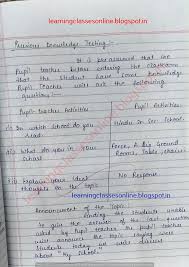 learningclassesonline.blogspot.in
Previous Knowledge Testing:-
It is presumed that the
Pupil teacher before entering the classroom
that the student have some knowledge
Pupil Teacher will ask the following
question:-
Pupil-teacher Activities Pupil Activities
(i) In which school do you Hindu Sr. Sec. School.
read
(ii) What do you in your Fence, A Big Ground
School Rooms, Table, chair
(iii) Explain your ideal No Response
thoughts on the topic
learningclassesonline.blogspot.in
Announcement of the Topic:-
Finding the students unable
to give the answer of the question
asked by Pupil teacher, the pupil teacher
will announce the topic
Students today we will discuss
about "My School".
learningclassesonline.blogspot.in